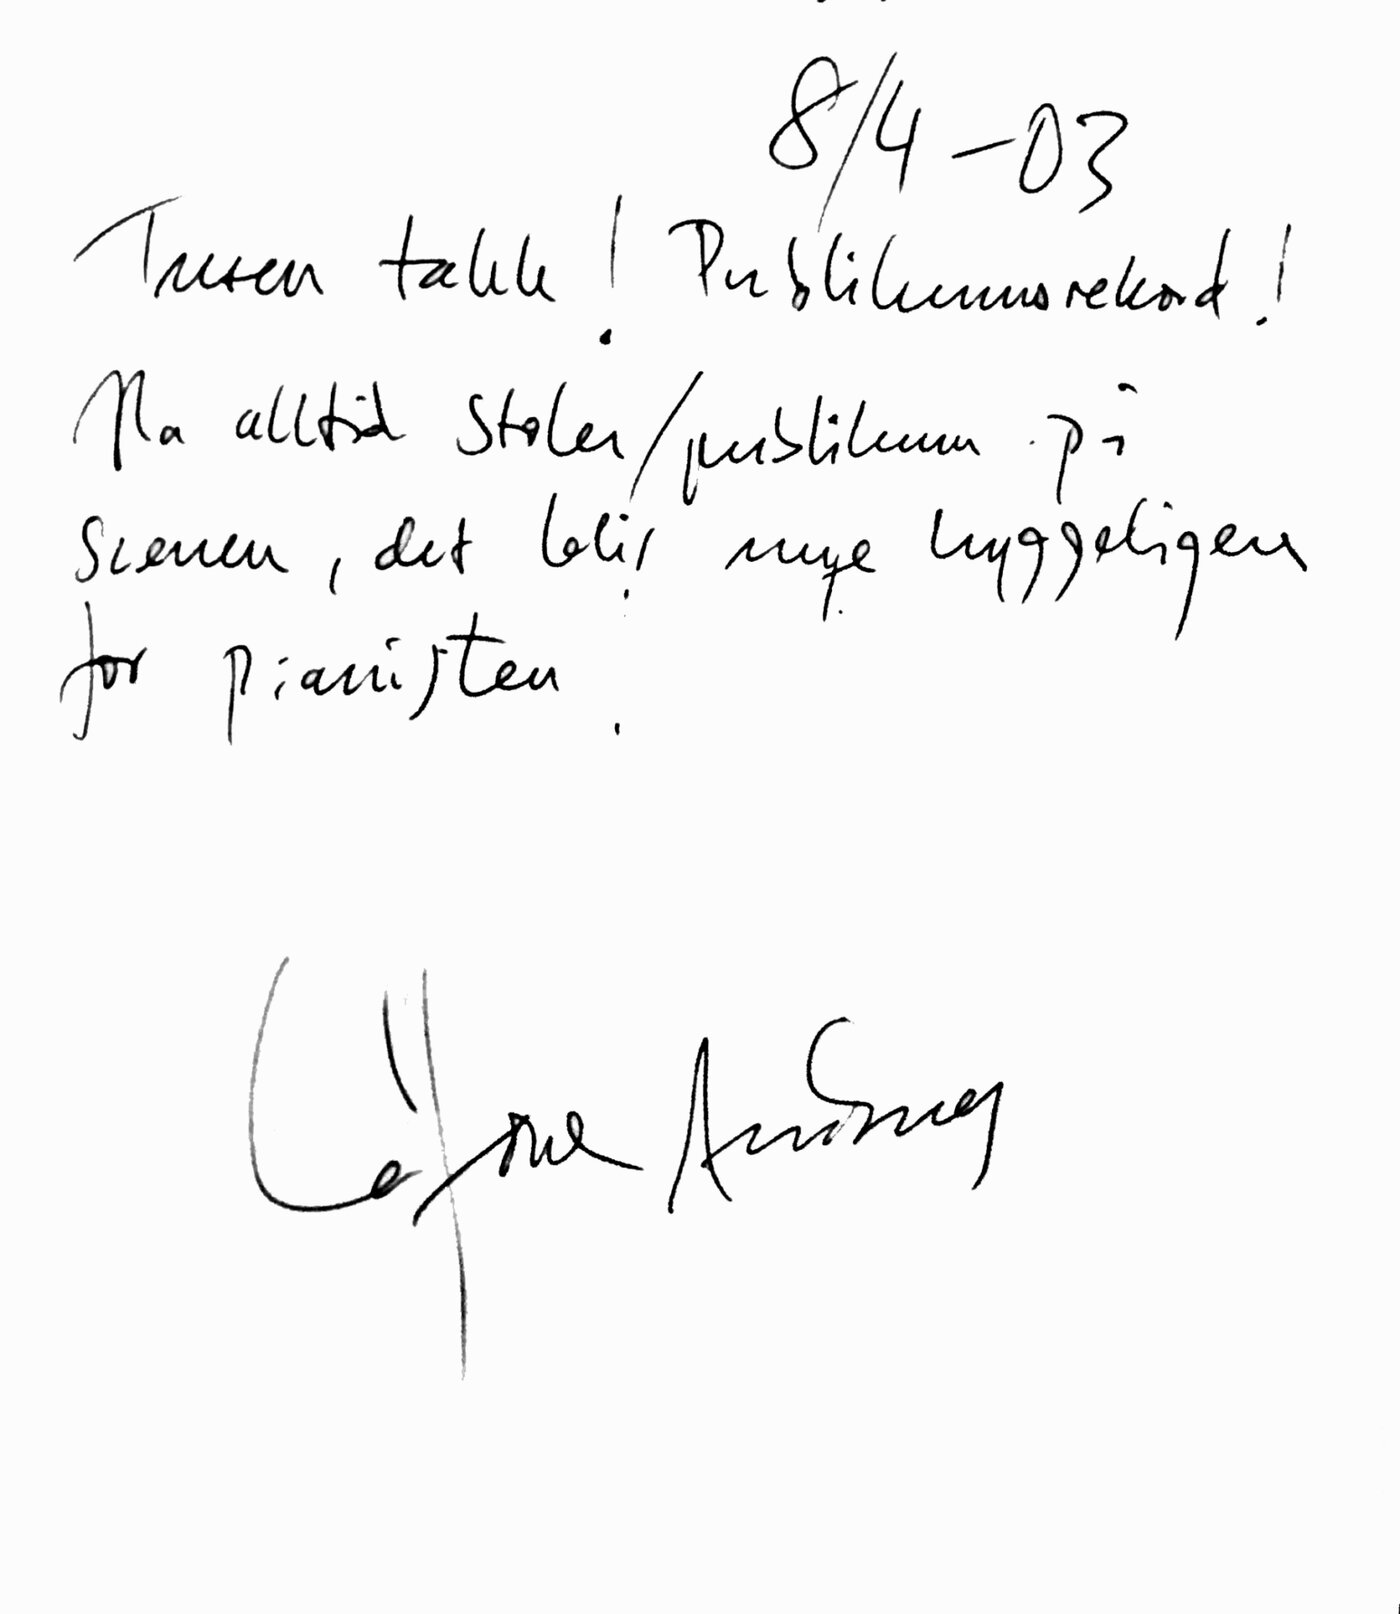 8/4-03
Tusen takk! Publikumsrekord!
Ha alltid stoler/publikum på
scenen, det blir mye hyggeligere
for pianisten.
Leif Ove Andsnes